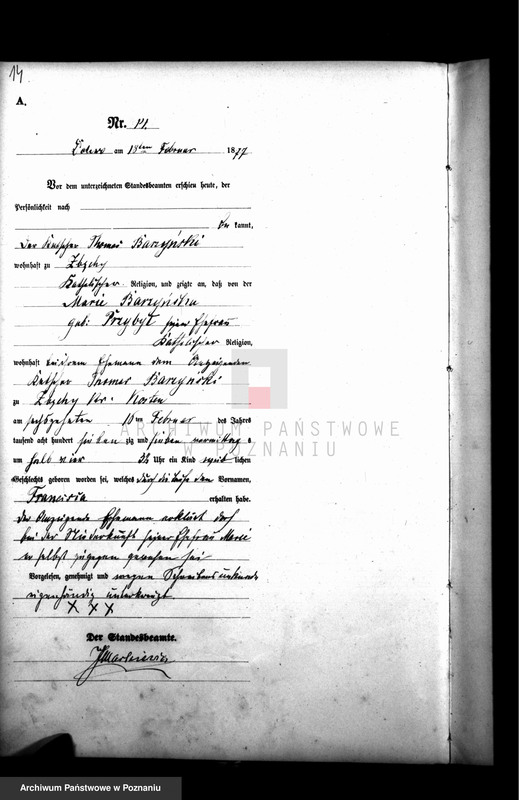 14.
A.
Nr. 14.
am 18ten Februar 1877
Vor dem unterzeichneten Standesbeamten erschien heute, der
Persönlichkeit nach
be kannt,
der Kutscher Thomas Barzyński
wohnhaft zu Zbęchy
Katholischer Religion, und zeigte an, daß von der
Marie Barzyńska
geb: Przybył seiner Ehefrau
Katholischer Religion,
wohnhaft bei ihrem Ehemann dem Anzeigenden
Kutscher Thomas Barzyński
zu Zbęchy Kr: Kosten
am sechszehnten Februar des Jahres
tausend acht hundert sieben zig und sieben vormittag s
um halb vier 3½ Uhr ein Kind weib lichen
Geschlechts geboren worden sei, welches durch die Taufe den Vornamen,
Francisca erhalten habe.
Der Anzeigende Ehemann erklärt daß
bei der Niederkunft seiner Ehefrau Marie
er selbst zugegen gewesen sei
Vorgelesen, genehmigt und wegen Schreibensunkunde
eigenhändig unterkreuzt
X X X
Der Standesbeamte.
ARCHIWUM PAŃSTWOWE
W POZNANIU
Archiwum Państwowe w Poznaniu